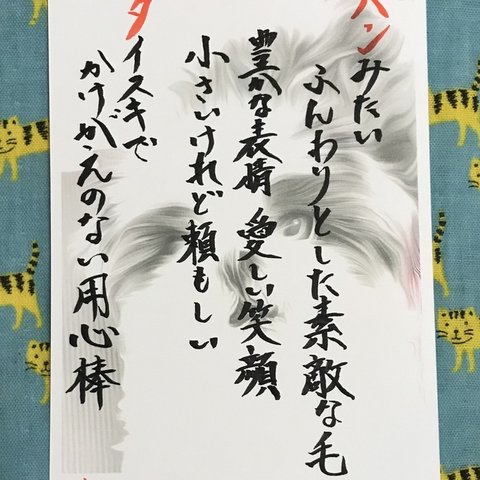 パンみたい
ふんわりとした素敵な毛
豊かな表情 愛しい笑顔
小さいけれど頼もしい
ダイスキで
かけがえのない用心棒